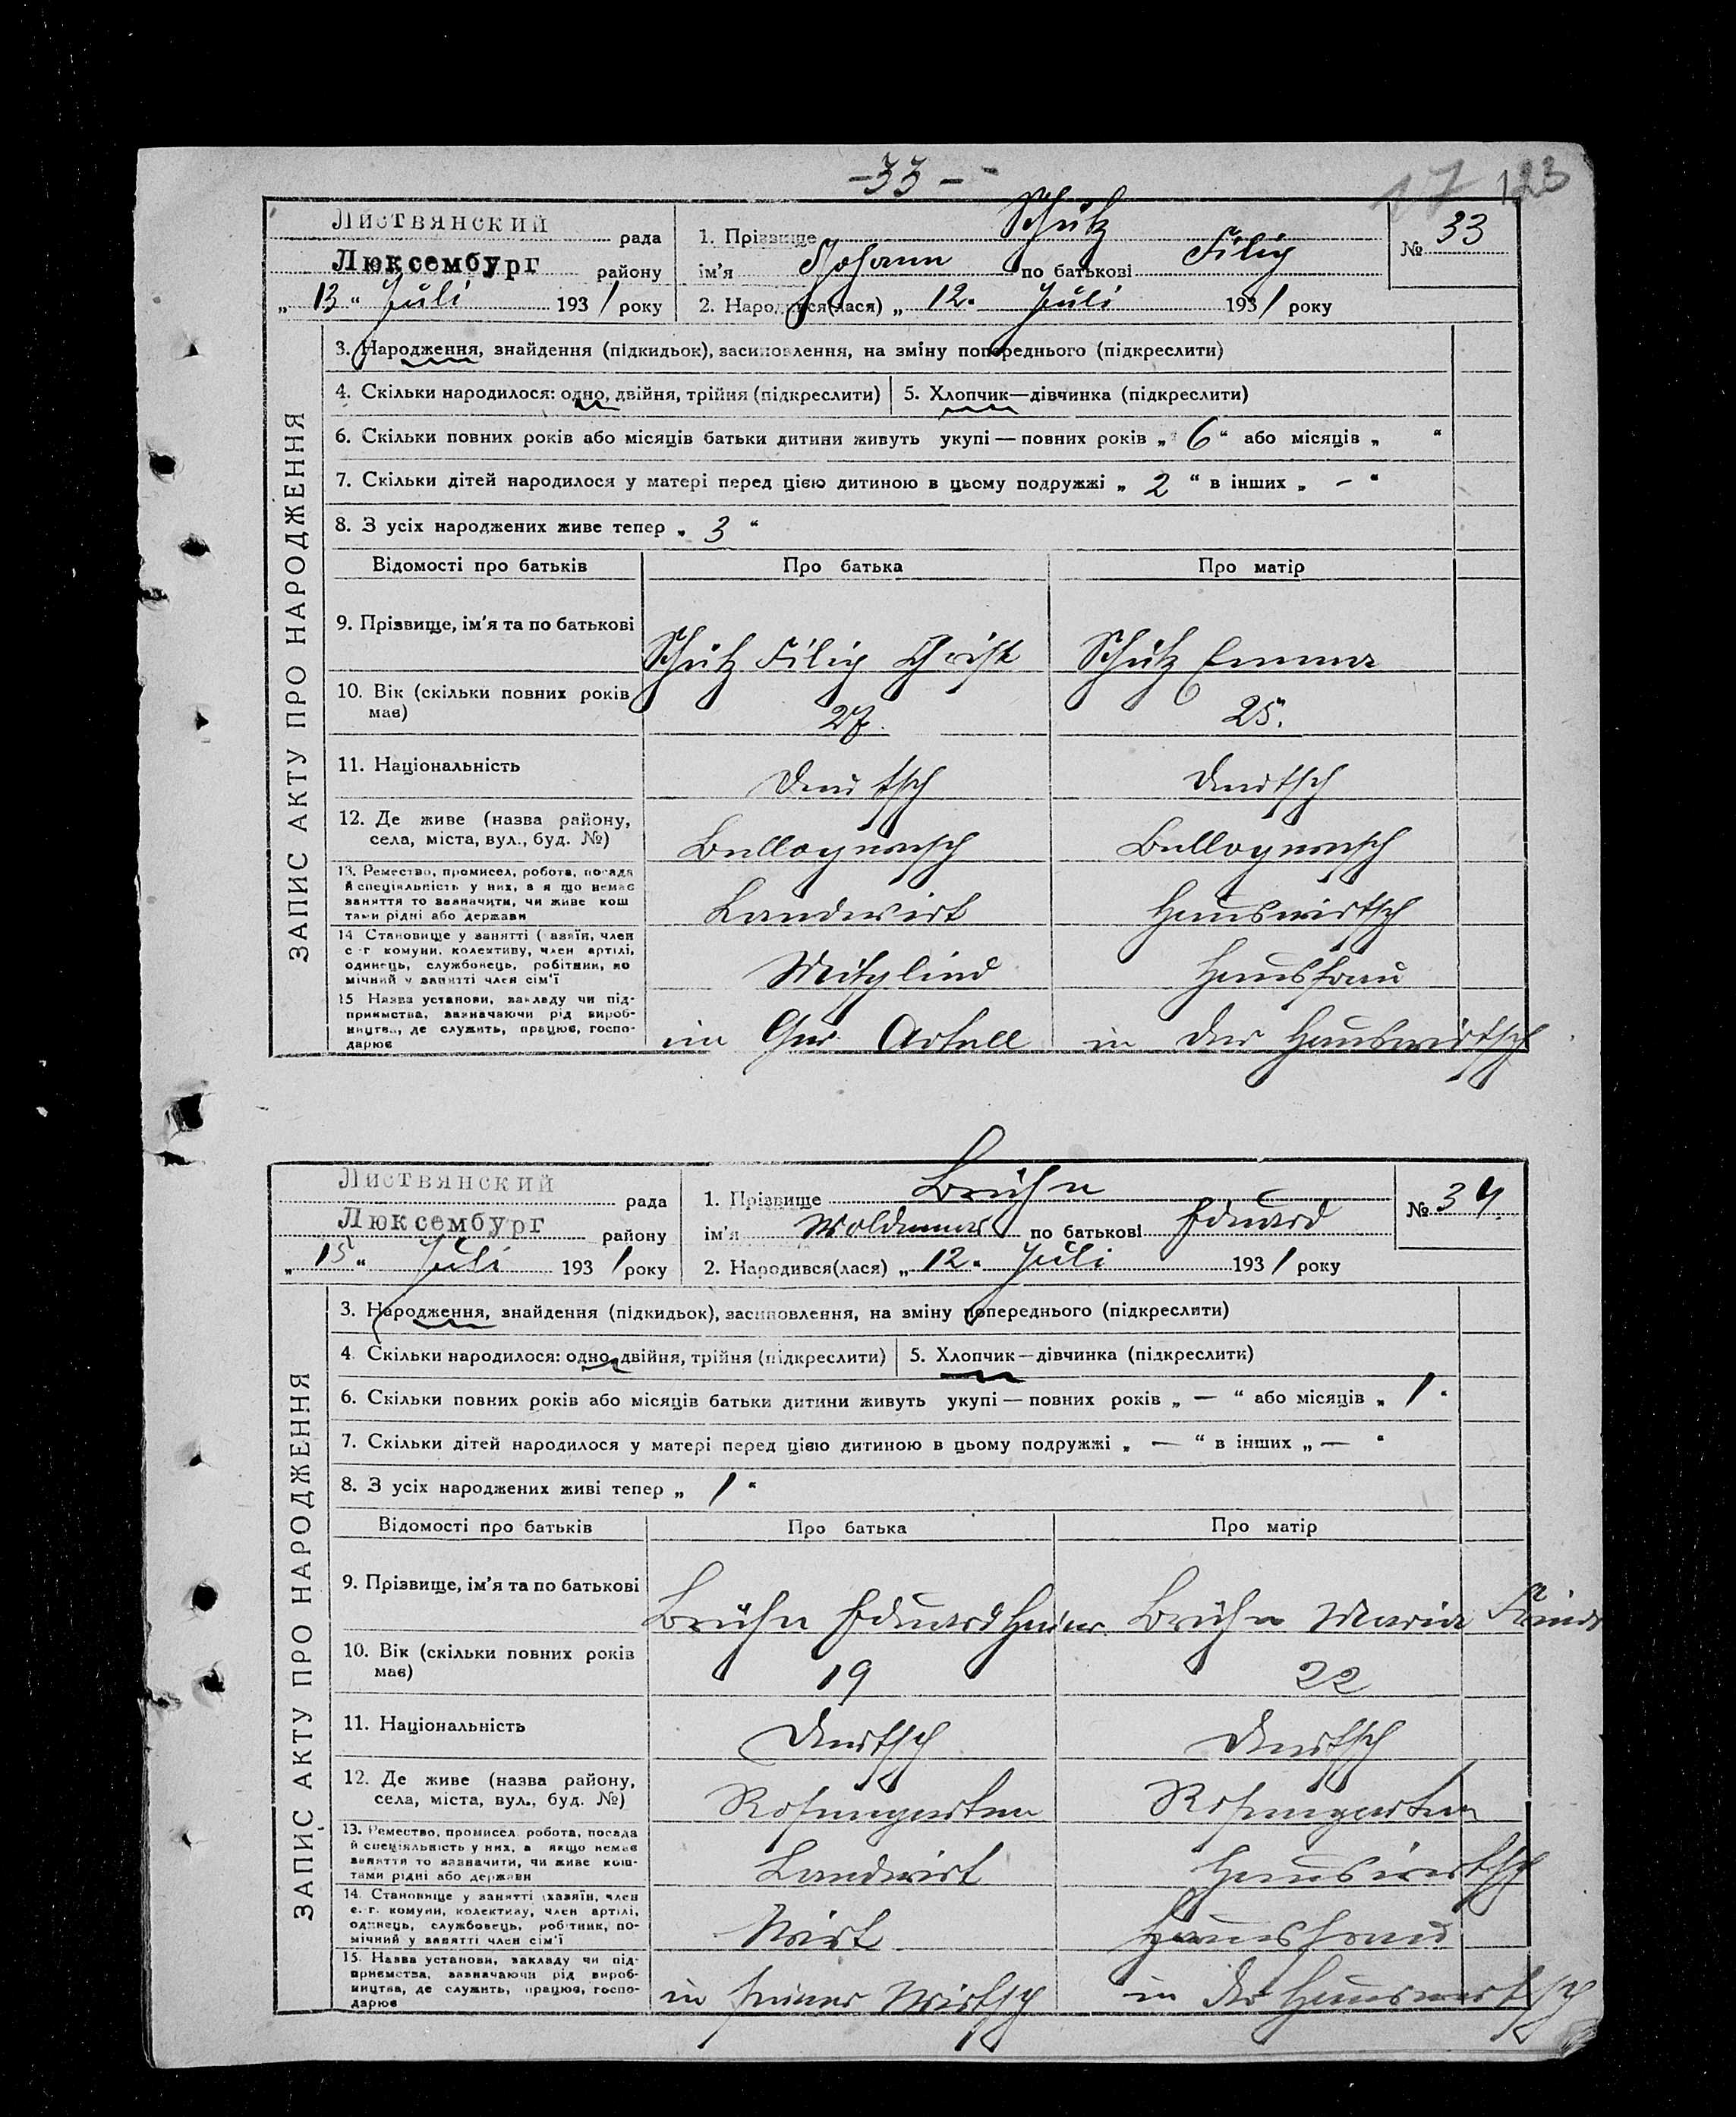 -33-
17 123
Листвянский рада
Люксембург району
„ 13 “ Juli 1931 року
1. Прізвище Schütz
ім'я Johann по батькові Filip
2. Народився(лася) „ 12. Juli 1931 року
№ 33
ЗАПИС АКТУ ПРО НАРОДЖЕННЯ
3. Народження, знайдення (підкидьок), засиновлення, на зміну попереднього (підкреслити)
4. Скільки народилося: одно, двійня, трійня (підкреслити) 5. Хлопчик—дівчинка (підкреслити)
6. Скільки повних років або місяців батьки дитини живуть укупі — повних років „ 6 “ або місяців „ “
7. Скільки дітей народилося у матері перед цією дитиною в цьому подружжі „ 2 “ в інших „ - “
8. З усіх народжених живе тепер „ 3 “
Відомості про батьків Про батька Про матір
9. Прізвище, ім'я та по батькові Schütz Filip Christ Schütz Emma
10. Вік (скільки повних років має) 27. 25.
11. Національність Deutsch Deutsch
12. Де живе (назва району, села, міста, вул., буд. №)
13. Ремество, промисел, робота, посада й спеціяльність у них, а я що немає заняття то зазначити, чи живе кош тами рідні або держави Landwirt Hauswirtsch
14 Становище у занятті (хазяїн, член с-г комуни, колективу, член артілі, одинець, службовець, робітник, помічний у занятті член сім'ї Mitglied Hausfrau
15 Назва установи, закладу чи підприємства, зазначаючи рід виробництва, де служить, працює, господарює im Artell in der Hauswirtsch
Листвянский рада
Люксембург району
„ 15 “ Juli 1931 року
1. Прізвище Brühn
ім'я Woldemar по батькові Eduard
2. Народився(лася) „ 12. Juli 1931 року
№ 34.
ЗАПИС АКТУ ПРО НАРОДЖЕННЯ
3. Народження, знайдення (підкидьок), засиновлення, на зміну попереднього (підкреслити)
4. Скільки народилося: одно, двійня, трійня (підкреслити) 5. Хлопчик—дівчинка (підкреслити)
6. Скільки повних років або місяців батьки дитини живуть укупі — повних років „ — “ або місяців „ 1 “
7. Скільки дітей народилося у матері перед цією дитиною в цьому подружжі „ — “ в інших „ — “
8. З усіх народжених живі тепер „ 1 “
Відомості про батьків Про батька Про матір
9. Прізвище, ім'я та по батькові Brühn Eduard Heinr. Brühn Maria
10. Вік (скільки повних років має) 19 22
11. Національність Deutsch Deutsch
12. Де живе (назва району, села, міста, вул., буд. №) Rosengarten Rosengarten
13. Ремество, промисел, робота, посада й спеціяльність у них, а якщо немає заняття то зазначити, чи живе коштами рідні або держави Landwirt Hauswirtsch
14. Становище у занятті (хазяїн, член с.-г. комуни, колективу, член артілі, одинець, службовець, робітник, помічний у занятті член сім'ї Wirt Hausfrau
15. Назва установи, закладу чи підприємства, зазначаючи рід виробництва, де служить, працює, господарює in seiner Wirtsch in der Hauswirtsch